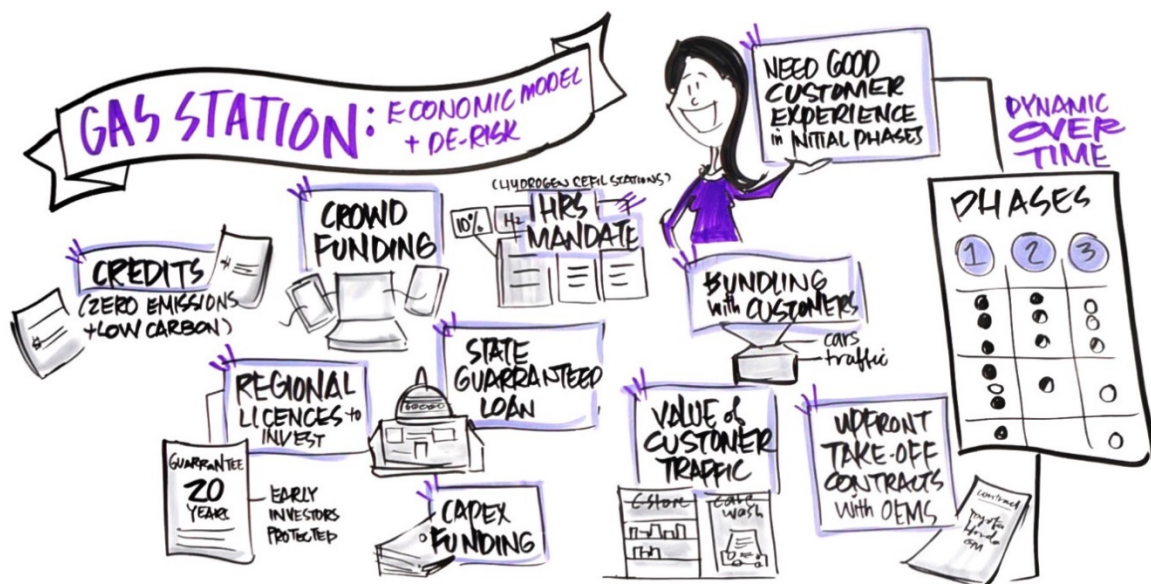 GAS STATION: ECONOMIC MODEL
+ DE-RISK
NEED GOOD
CUSTOMER
EXPERIENCE
in INITIAL PHASES
DYNAMIC
OVER
TIME
PHASES
1 2 3
CREDITS
(ZERO EMISSIONS
+LOW CARBON)
$
$
CROWD
FUNDING
(HYDROGEN REFIL STATIONS)
10%
H2
HRS
MANDATE
BUNDLING
with CUSTOMERS
cars
traffic
REGIONAL
LICENCES to
INVEST
GUARRANTEE
20
YEARS
EARLY
INVESTORS
PROTECTED
STATE
GUARRANTEED
LOAN
CAPEX
FUNDING
VALUE of
CUSTOMER
TRAFFIC
C-store
care
wash
UPFRONT
TAKE-OFF
CONTRACTS
with OEMS
contract
Toyota
Honda
GM